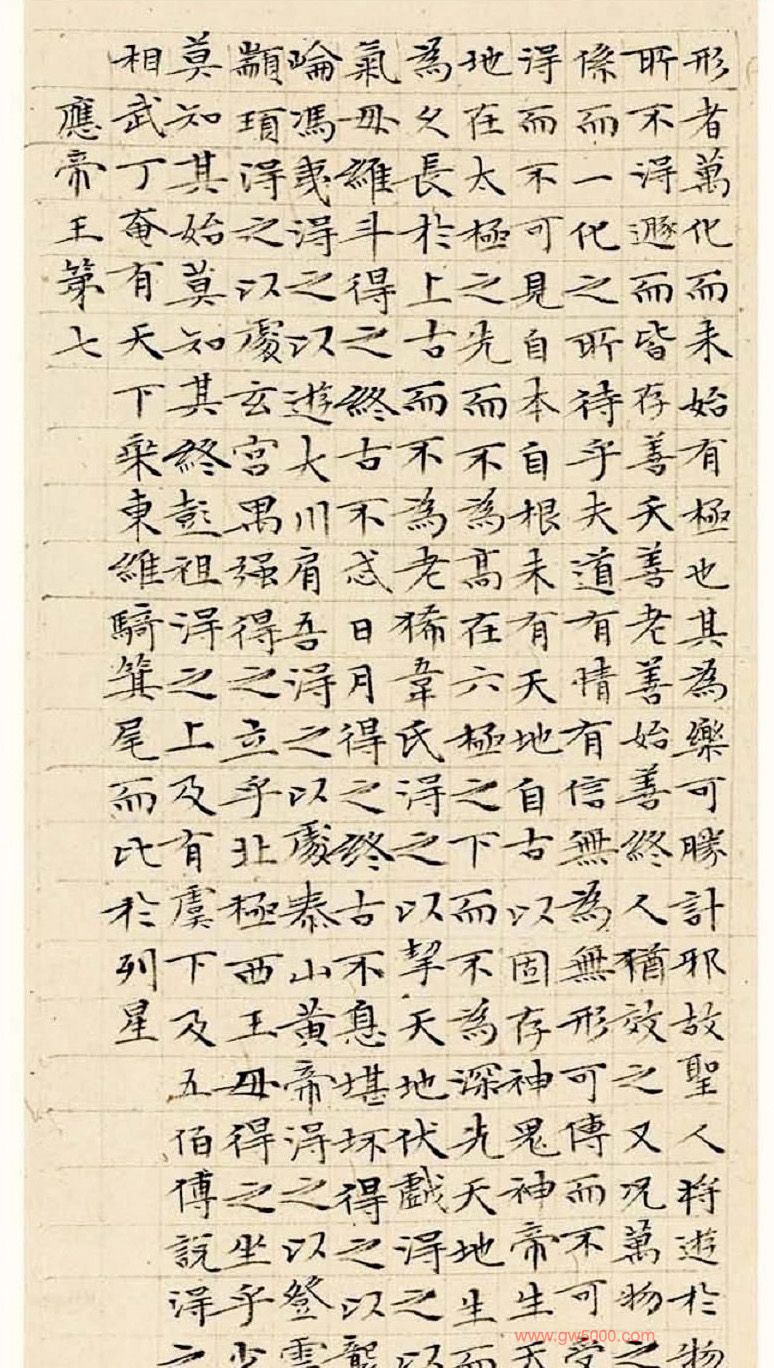 形者萬化而未始有極也其為樂可勝計邪故聖人將遊於物
所不得遯而皆存善夭善老善始善終人猶效之又況萬物之
係而一化之所待乎夫道有情有信無為無形可傳而不可受
得而不可見自本自根未有天地自古以固存神鬼神帝生天
地在太極之先而不為高在六極之下而不為深先天地生而
為久長於上古而不為老狶韋氏得之以挈天地伏戲得之以
氣母維斗得之終古不忒日月得之終古不息堪坏得之以襲
崘馮夷得之以遊大川肩吾得之以處泰山黃帝得之以登雲
顓頊得之以處玄宮禺强得之立乎北極西王母得之坐乎少
莫知其始莫知其終彭祖得之上及有虞下及五伯傅說得之
相武丁奄有天下乘東維騎箕尾而比於列星
應帝王第七
www.gw5000.com